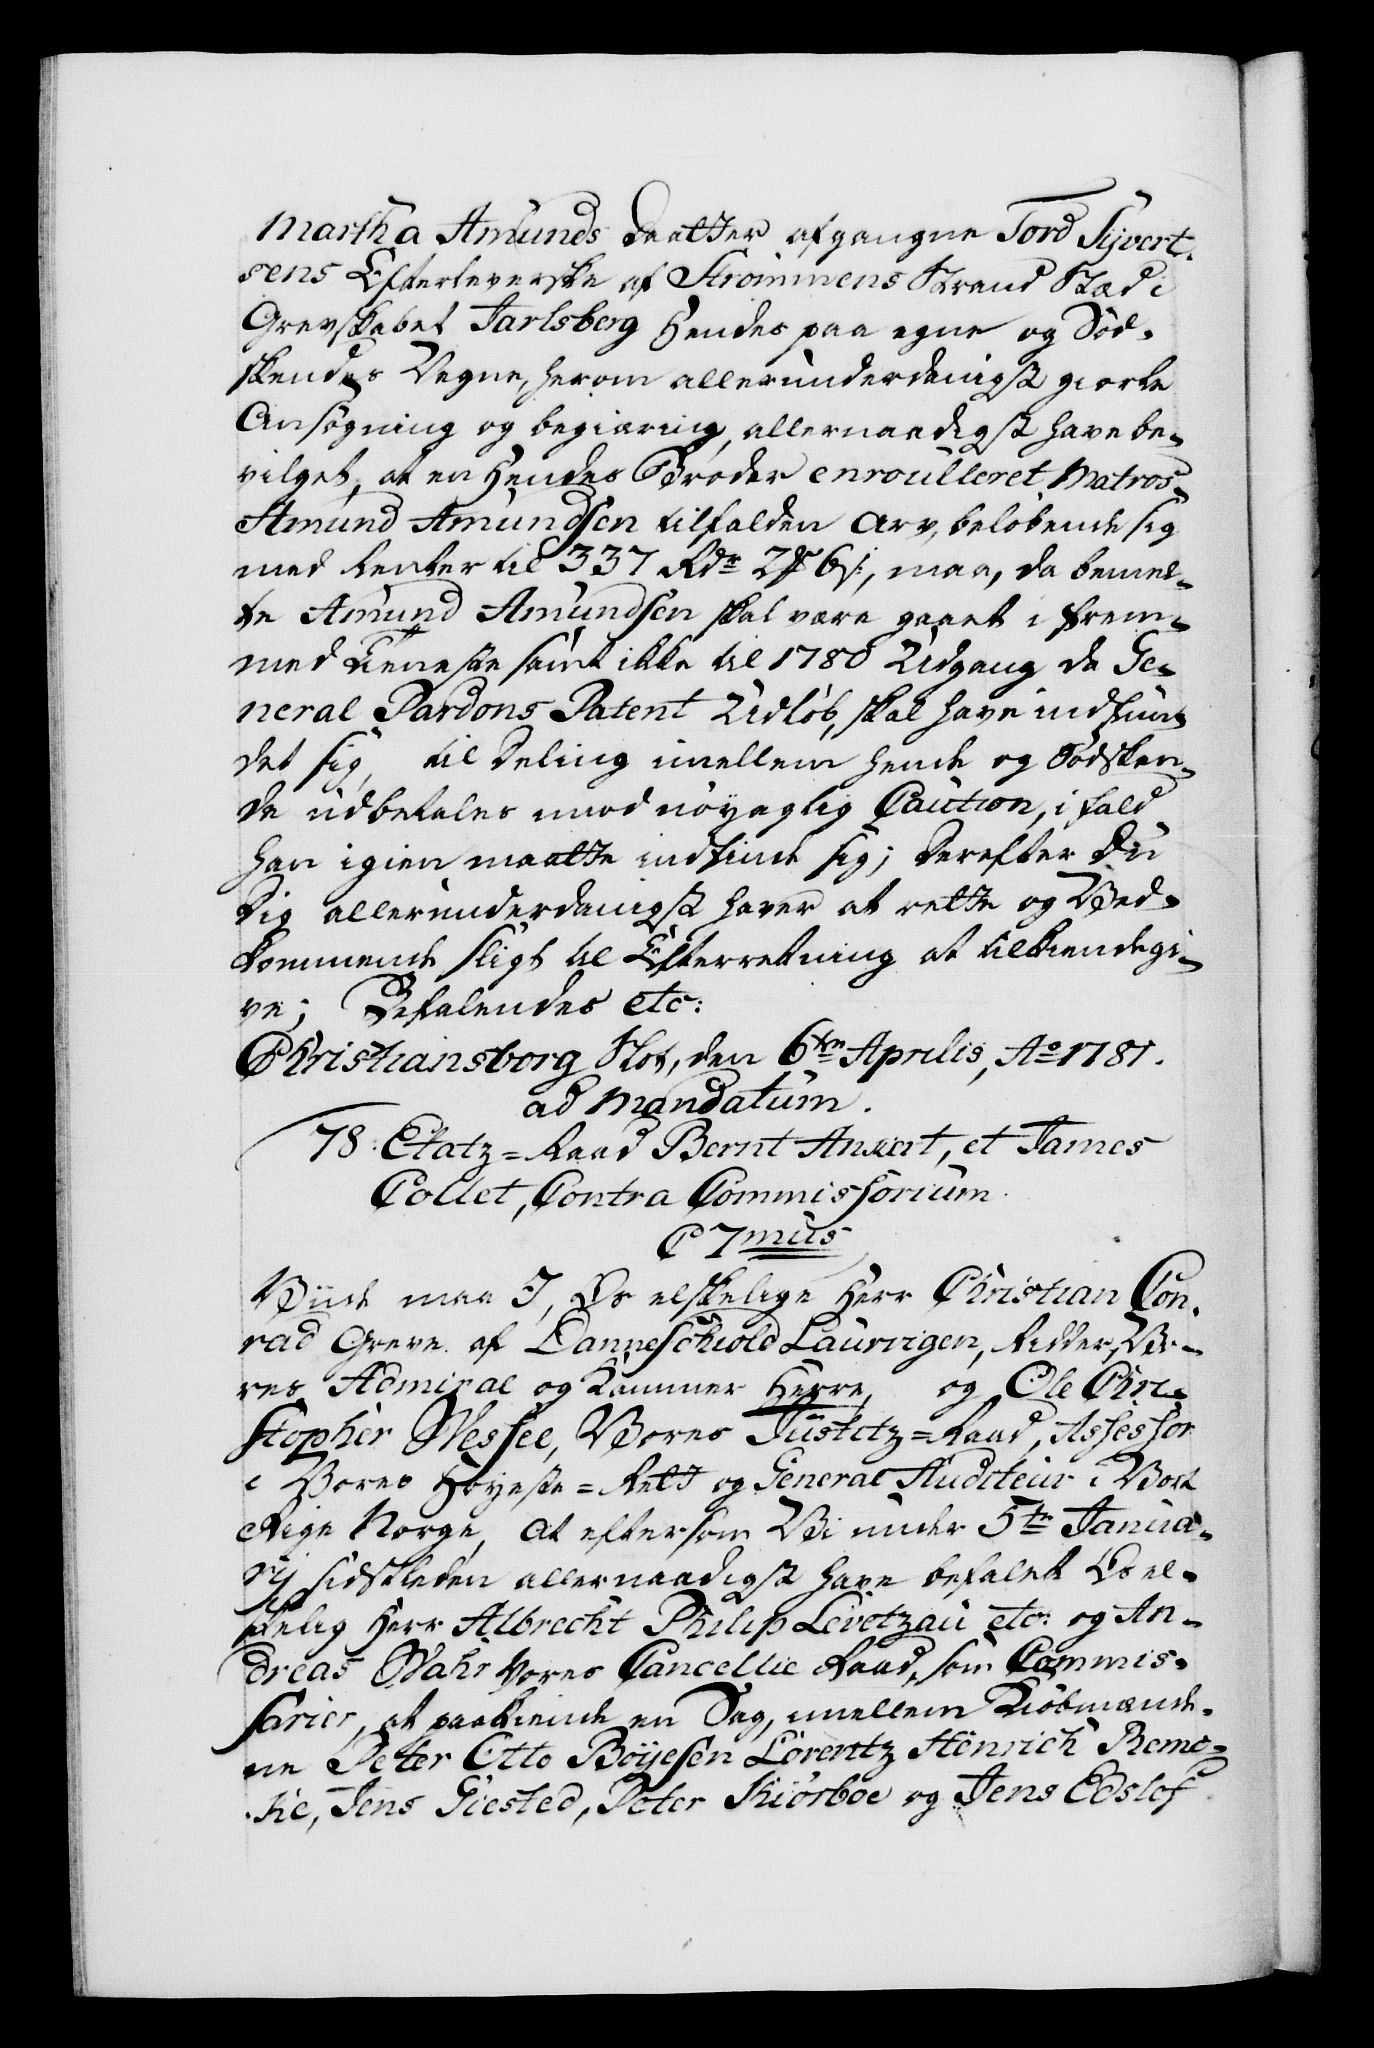 Martha Amunds Daatter afgangne Tord Syvert-
sens Efterleverske af Strømmens Strand Stæd i
Grevskabet Jarlsberg Hendes paa egne og Sød-
skendes Vegne, herom allerunderdanigst giorte
Ansøgning og begiæring, allernaadigst have be-
vilget, at en Hendes Broder enroulleret Matros
Amund Amundsen tilfalden Arv, beløbende sig
med Renter til 337 Rdr 2 6 s:, maa, da bemel-
te Amund Amundsen skal være gaaet i frem-
med Tieneste samt ikke til 1780 Udgang da Ge-
neral Pardons Patent Udløb, skal have indfun-
det sig, til Deling imellem hende og Sødsken-
de udbetales mod nøyagtig Caution, i fald
han igien maatte indfinde sig; Derefter Du
Dig allerunderdanigst haver at rette og Ved-
kommende sligt til Efterretning at tilkiendegi-
ve; Befalendes etc:
Christiansborg Slot, den 6ten Aprilis, Ao 1781.
ad Mandatum.
78: Etatz=Raad Bernt Anker, et James
Collet, Contra Commissorium.
C 7mus
Viide maa I, Os elskelige Herr Christian Con-
rad Greve af Danneschiold Laurvigen, Ridder, Vo-
res Admiral og Kammer Herre, og Ole Chri-
stopher Wessel, Vores Justitz=Raad, Assessor
i Vores Høyeste=Rett og General Auditeur i Vort
Rige Norge, At eftersom Vi under 5te Janua-
rij sidstleden allernaadigst have befalet Os el-
skelig Herr Albrecht Philip Levetzau etc: og An-
dreas Wahr Vores Cancellie Raad, som Commis-
sarier, at paakiende en Sag, imellem Kiøbmænde-
ne Peter Otto Bøyesen Lorentz Henrich Remo-
kie, Jens Giested, Peter Skiørboe og Jens Edslef